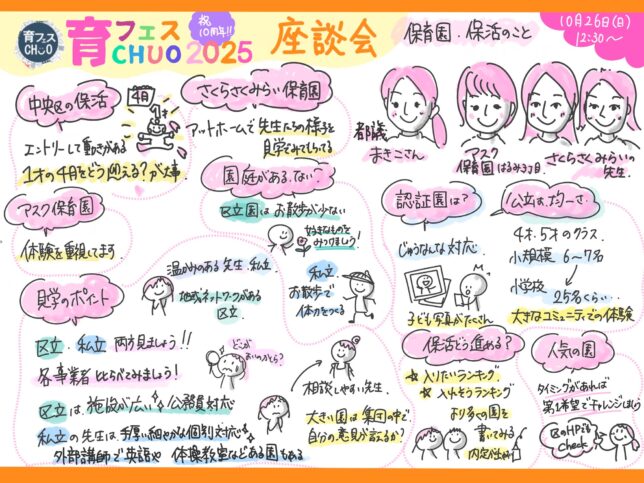 育フェス
CHUO
育フェス
CHUO 2025
祝
10周年!!
座談会
保育園・保活のこと
10月26日(日)
12:30〜
中央区の保活
4月
エントリーして動きがある
1才の4月をどう迎える?が大事
さくらさくみらい保育園
アットホームで先生たちの様子を
見学でみてもらってる
都議
まきこさん
アスク
保育園はるみ3丁目
さくらさくみらいの
先生
アスク保育園
体験を重視してます
園庭がある、ない?
区立園はお散歩が少ない
好きなものを
みつけましょう!
私立
お散歩で
体力をつくる
認証園は?
じゅうなんな対応
子ども写真がたくさん
公立は、均一さ
4才、5才のクラス
小規模 6〜7名
小学校
25名くらい…
大きなコミュニティでの体験
見学のポイント
温かみのある先生、私立
地域ネットワークがある
区立
区立、私立 両方見ましょう!!
各事業者比らべてみましょう!
どこが
区立は、施設が広い 公務員対応
私立の先生は手厚い細やかな個別対応
外部講師で英語や 体操教室などある園もある
相談しやすい先生
大きい園は集団の中で
自分の意見が言えるか?
保活どう進める?
入りたいランキング
入れそうランキング
より多くの園を
書いてみる
人気の園
タイミングがあれば
第1希望でチャレンジしよう
区のHPは
check